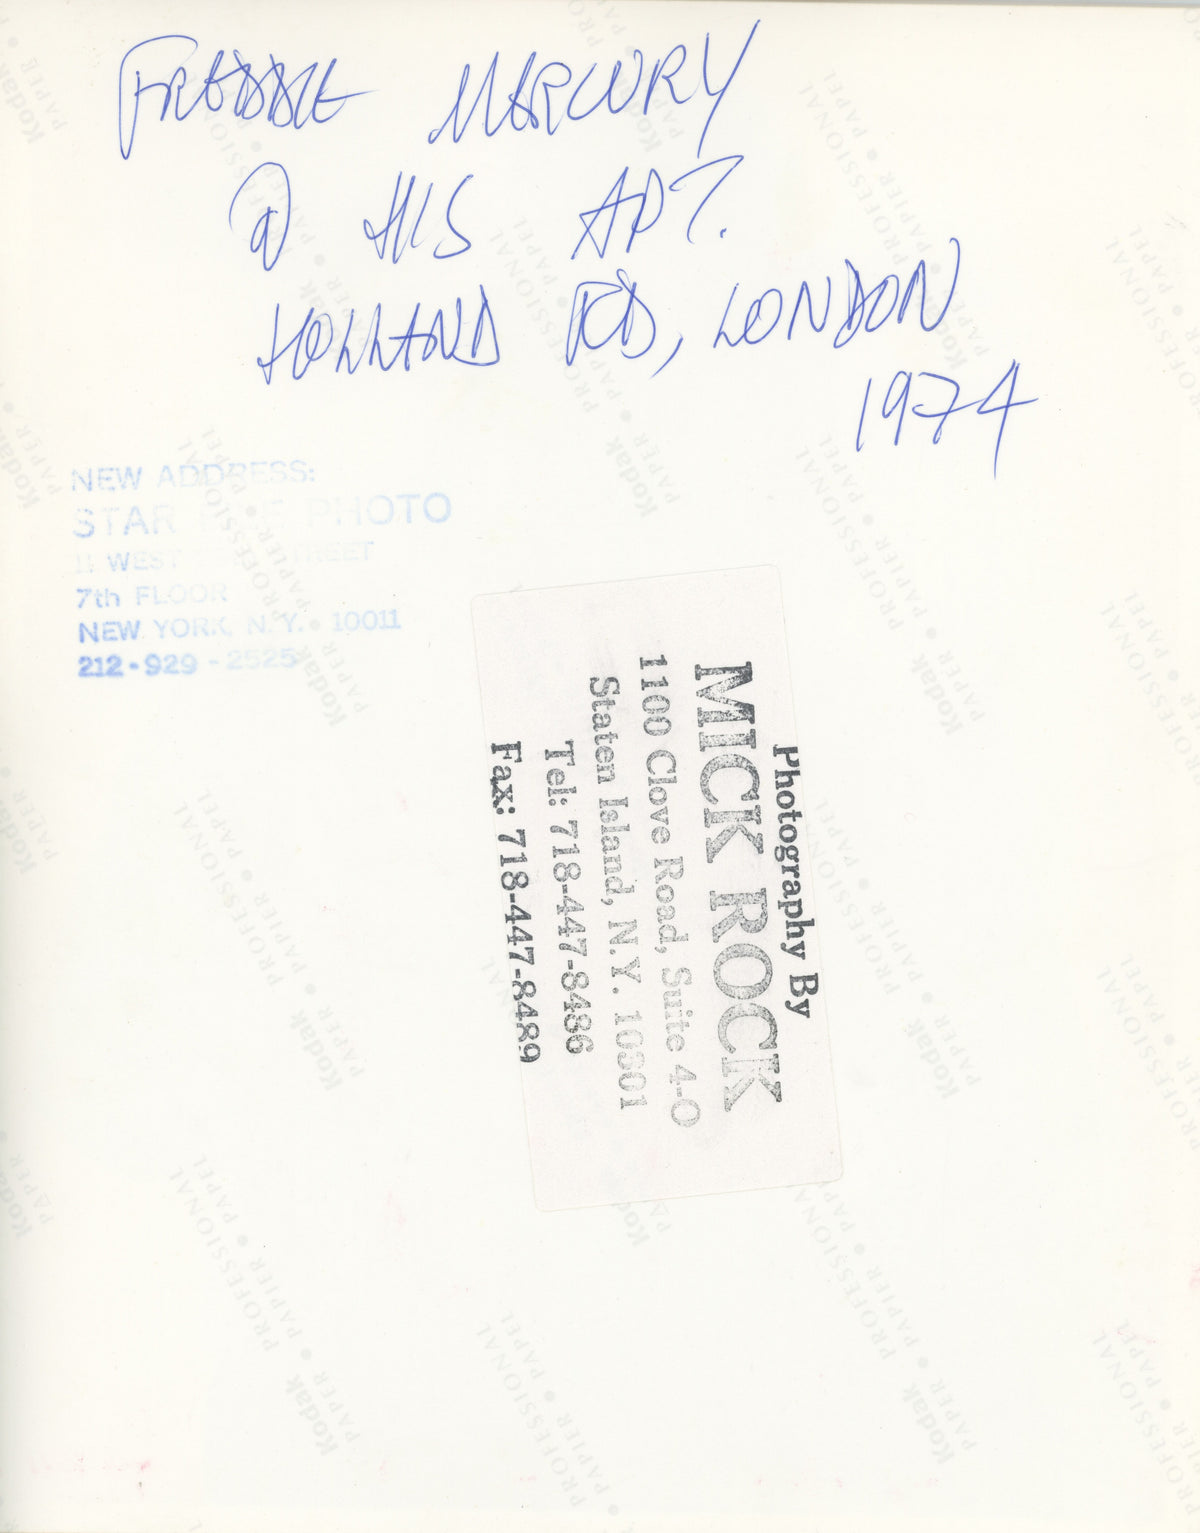 FREDDIE MERCURY
@ HIS APT.
HOLLAND RD, LONDON
1974
NEW ADDRESS:
STAR FILE PHOTO
11 WEST STREET
7th FLOOR
NEW YORK, N.Y. 10011
212-929-2525
Photography By
MICK ROCK
1100 Clove Road, Suite 4-O
Staten Island, N.Y. 10301
Tel: 718-447-8486
Fax: 718-447-8489
Kodak
PROFESSIONAL
PAPER • PAPIER • PAPEL